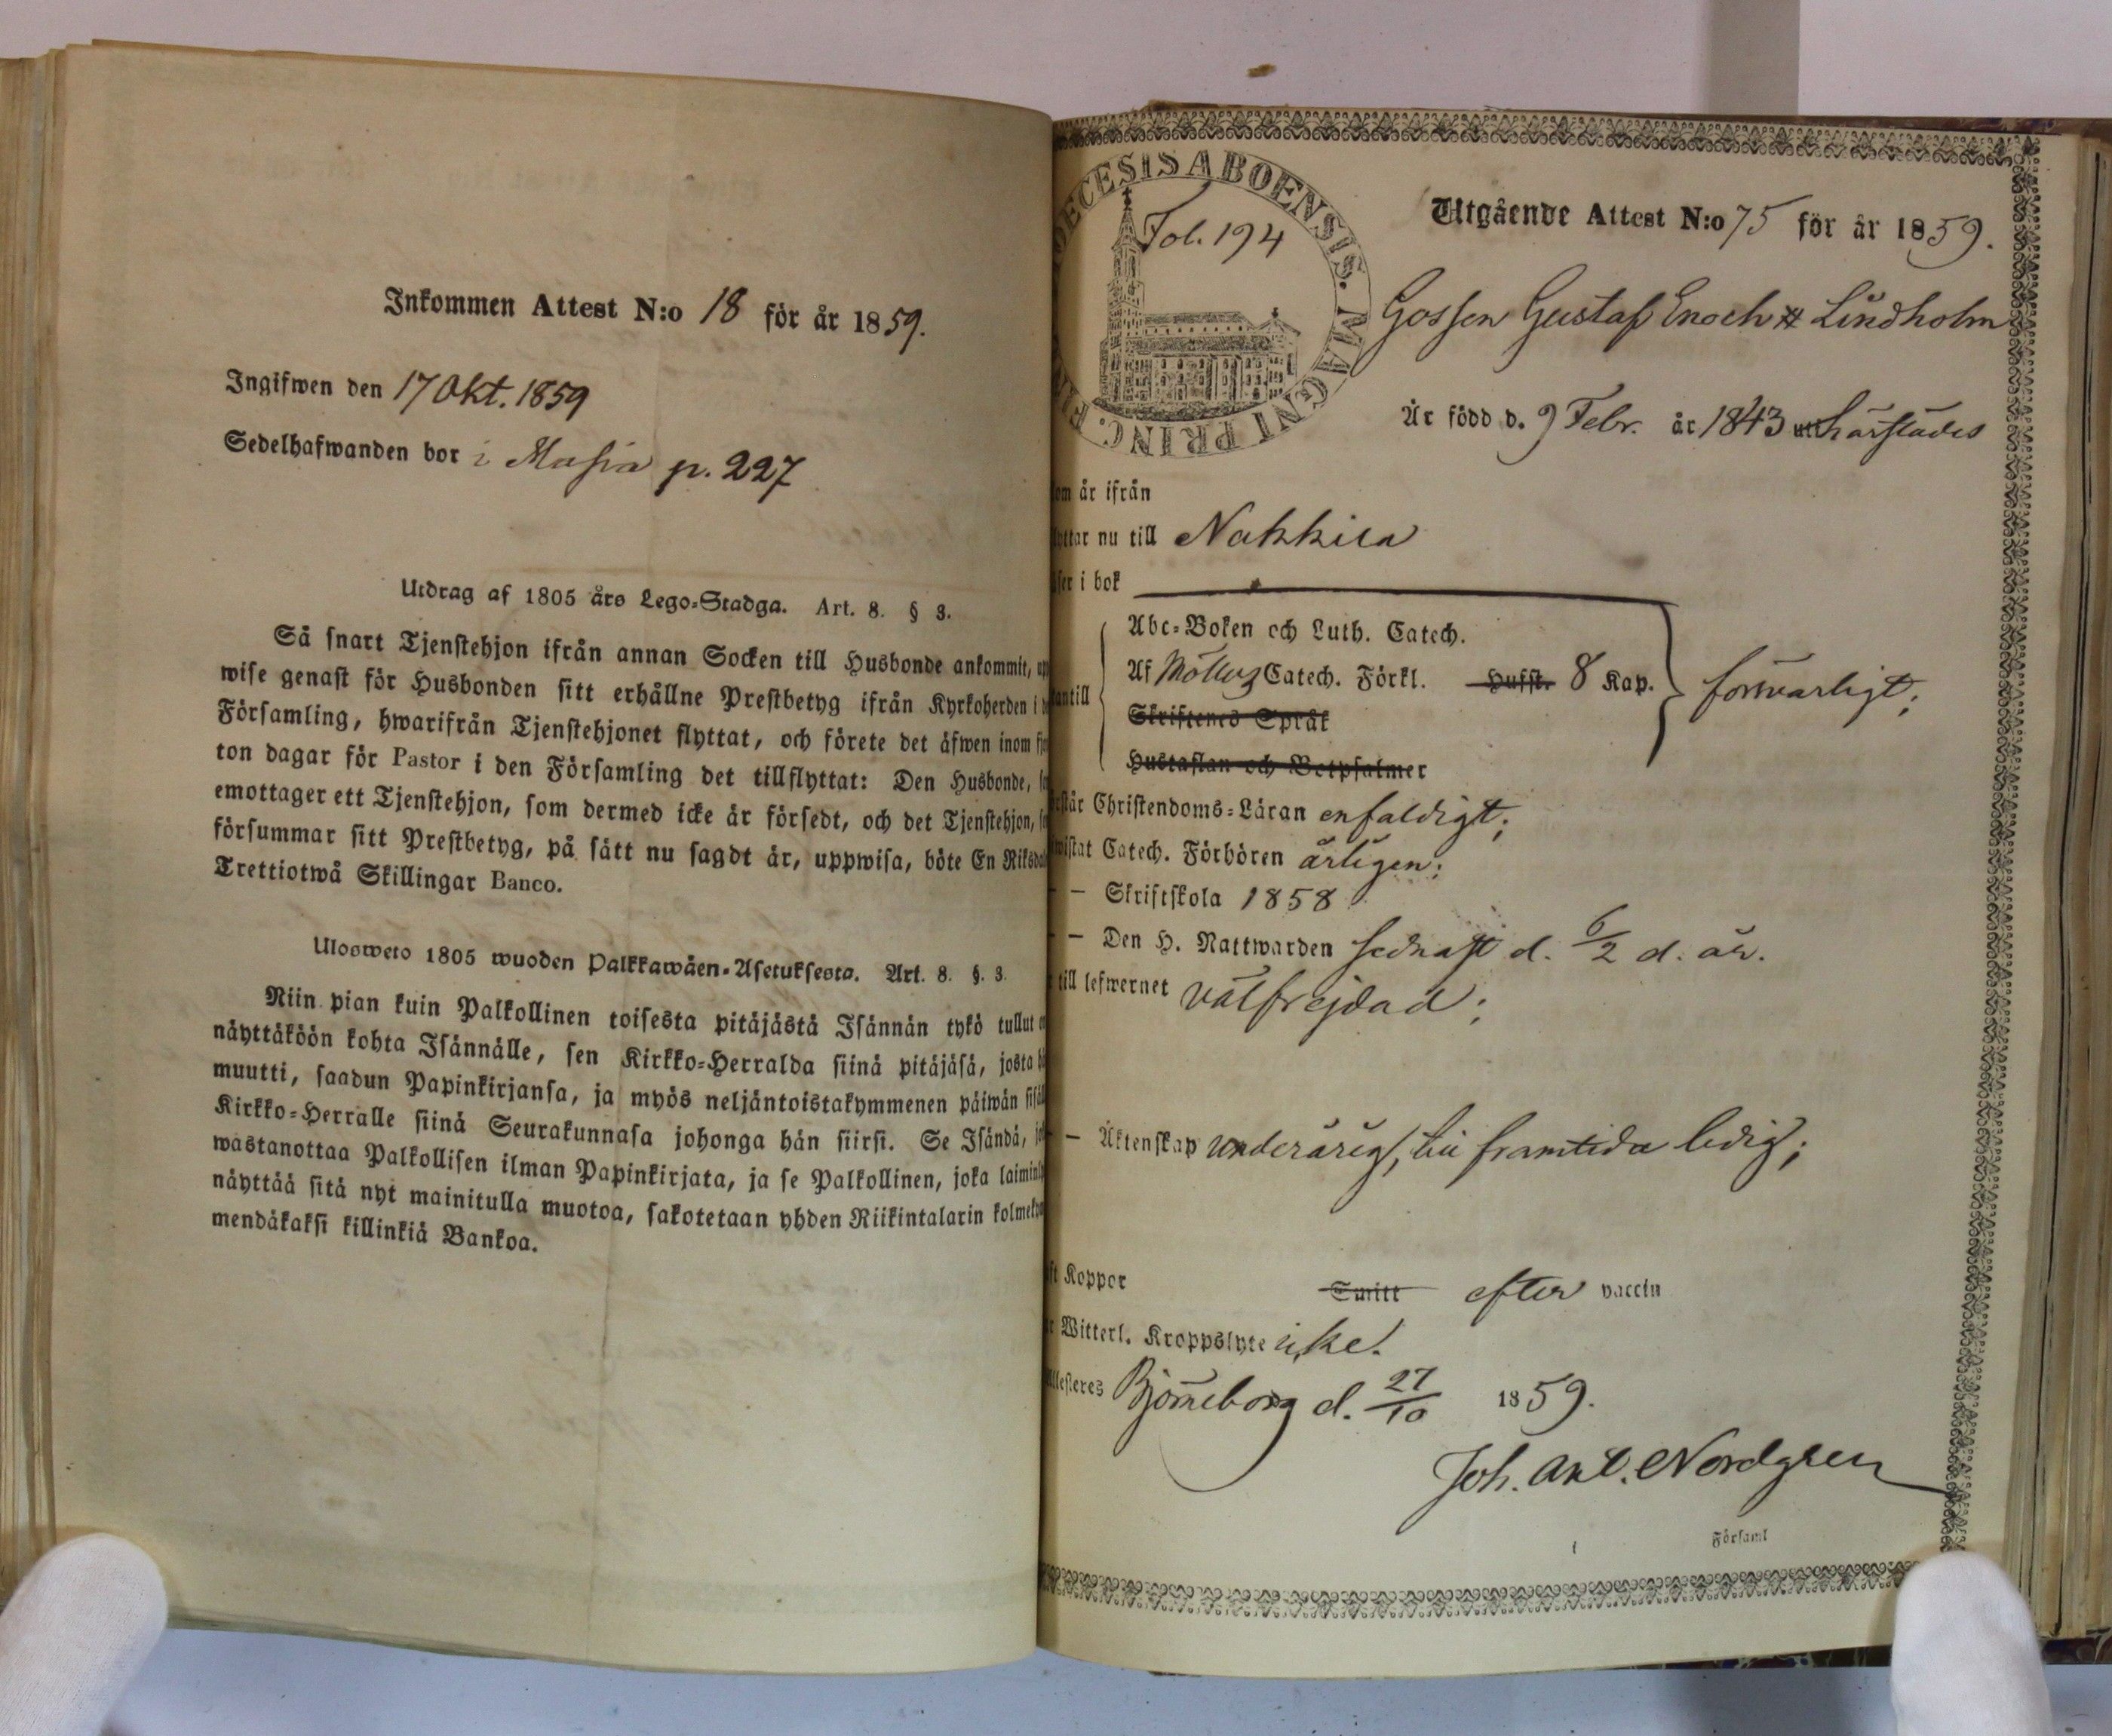 Inkommen Attest N:o 18 för år 1859.
Ingifwen den 17 Okt. 1859
Sedelhafwanden bor i Masia p. 227
Utdrag af 1805 års Lego-Stadga. Art. 8. § 3.
Så snart Tjenstehjon ifrån annan Socken till Husbonde ankommit, up
wise genast för Husbonden sitt erhållne Prestbetyg ifrån Kyrkoherden i
Församling, hwarifrån Tjenstehjonet flyttat, och förete det äfwen inom
ton dagar för Pastor i den Församling det tillflyttat: Den Husbonde,
emottager ett Tjenstehjon, som dermed icke är försedt, och det Tjenstehjon,
försummar sitt Prestbetyg, på sätt nu sagdt är, uppwisa, böte En Riksda
Trettiotwå Skillingar Banco.
Ulosweto 1805 wuoden Palkkawäen-Asetuksesta. Art. 8. §. 3.
Niin pian kuin Palkollinen toisesta pitäjästä Isännän tykö tullut
näyttäköön kohta Isännälle, sen Kirkko-Herralda siinä pitäjäsä, josta
muutti, saadun Papinkirjansa, ja myös neljäntoistakymmenen päiwän sisäl
Kirkko-Herralle siinä Seurakunnasa johonga hän siirsi. Se Isändä,
wastanottaa Palkollisen ilman Papinkirjata, ja se Palkollinen, joka laimin
näyttää sitä nyt mainitulla muotoa, sakotetaan yhden Riikintalarin kolmeky
mendäkaksi killinkiä Bankoa.
OECESIS ABOENSIS. MAGNI PRINC. F
Fol. 194
Utgående Attest N:o 75 för år 1859.
Gossen Gustaf Enoch Lindholm
Är född d. 9 Febr. år 1843 härstädes
om är ifrån
yttar nu till Nakkila
äser i bok
Abc-Boken och Luth. Catech.
Af Möllers Catech. Förkl. Husst. 8 Kap.
försvarligt;
antill
Skriftenes Språk
Hustaflan och Botpsalmer
rstår Christendoms-Läran enfaldigt;
wistat Catech. Förhören årligen;
— Skriftskola 1858
— Den H. Nattwarden sednast d. 6/2 d. år.
till lefwernet välfrejdad;
— Äktenskap underårig, till framtida ledig;
ft Koppor Twitt efter vaccin
r Witterl. Kroppslyte icke.
ttesteres Björneborg d. 27/10 1859.
Joh. Ant. Nordgren
Församl